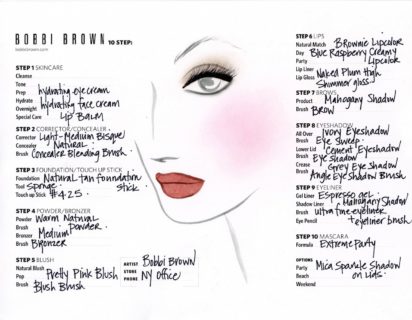 BOBBI BROWN 10 STEP:
bobbibrown.com
STEP 1 SKINCARE
Cleanse
Tone
Prep hydrating eye cream
Hydrate hydrating face cream
Overnight
Special Care Lip Balm
STEP 2 CORRECTOR/CONCEALER
Corrector Light-Medium Bisque
Concealer Natural
Brush Concealer Blending Brush
STEP 3 FOUNDATION/TOUCH UP STICK
Foundation Natural tan foundation
Tool sponge. stick.
Touch up Stick #4.25
STEP 4 POWDER/BRONZER
Powder Warm Natural
Brush Powder.
Bronzer Medium
Brush Bronzer
STEP 5 BLUSH
Natural Blush
Pop Pretty Pink Blush
Brush Blush Blush
ARTIST Bobbi Brown
STORE
PHONE NY Office
STEP 6 LIPS
Natural Match Brownie Lipcolor
Day Blue Raspberry Creamy
Party Lipcolor
Lip Liner
Lip Gloss Naked Plum High
Shimmer gloss
STEP 7 BROWS
Product Mahogany Shadow
Brush Brow
STEP 8 EYESHADOW
All Over Ivory Eyeshadow
Brush Eye Sweep
Lower Lid Cement Eyeshadow
Brush Eye Shadow
Crease Grey Eye Shadow
Brush Angle Eye Shadow Brush
STEP 9 EYELINER
Gel Liner Espresso gel
Shadow Liner Mahogany Shadow
Brush ultra fine eyeliner
Eye Pencil + eyeliner brush
STEP 10 MASCARA
Formula Extreme Party
OPTIONS
Party Mica Sparkle Shadow
Beach on Lids.
Weekend